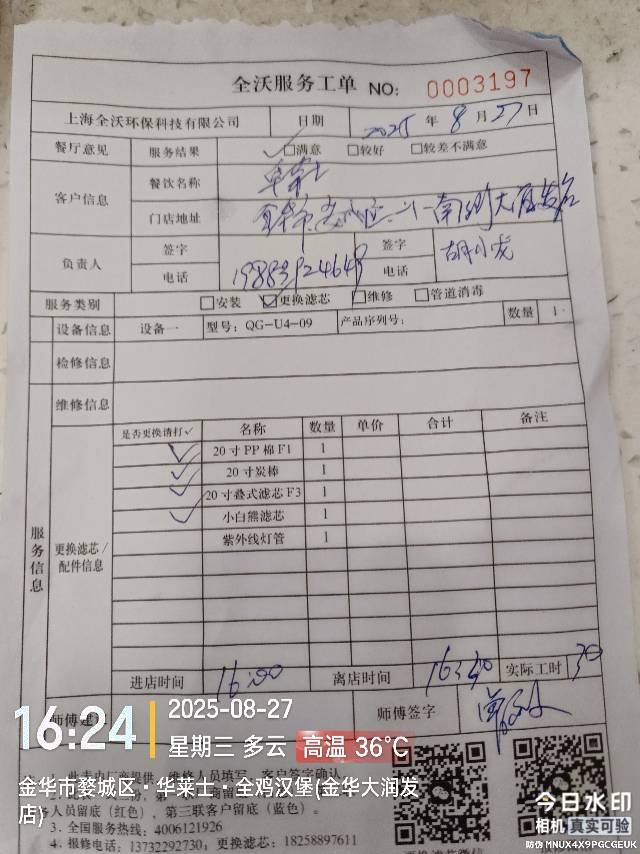 全沃服务工单 NO: 0003197
上海全沃环保科技有限公司 日期 2025 年 8 月 27 日
餐厅意见 服务结果 ☑满意 □较好 □较差不满意
客户信息 餐饮名称 华莱士
门店地址 金华市
负责人 签字 签字 胡小龙
电话 电话
服务类别 □安装 ☑更换滤芯 □维修 □管道消毒
设备信息 设备一 型号: QG-U4-09 产品序列号: 数量 1
检修信息
维修信息
服务信息 更换滤芯/配件信息
是否更换请打✓ 名称 数量 单价 合计 备注
✓ 20寸PP棉F1 1
✓ 20寸炭棒 1
✓ 20寸叠式滤芯F3 1
✓ 小白熊滤芯 1
紫外线灯管 1
进店时间 16:00 离店时间 16:30 实际工时 30
师傅建 师傅签字
16:24 2025-08-27
星期三 多云 高温 36℃
维修人员填写，客户签字确认
金华市婺城区·华莱士·全鸡汉堡(金华大润发店)
人员留底（红色），第三联客户留底（蓝色）。
3.全国服务热线: 4006121926
4.报修电话: 13732292730; 更换滤芯: 18258897611
今日水印
相机 真实可验
防伪 MNUX4X9PGCGEUK